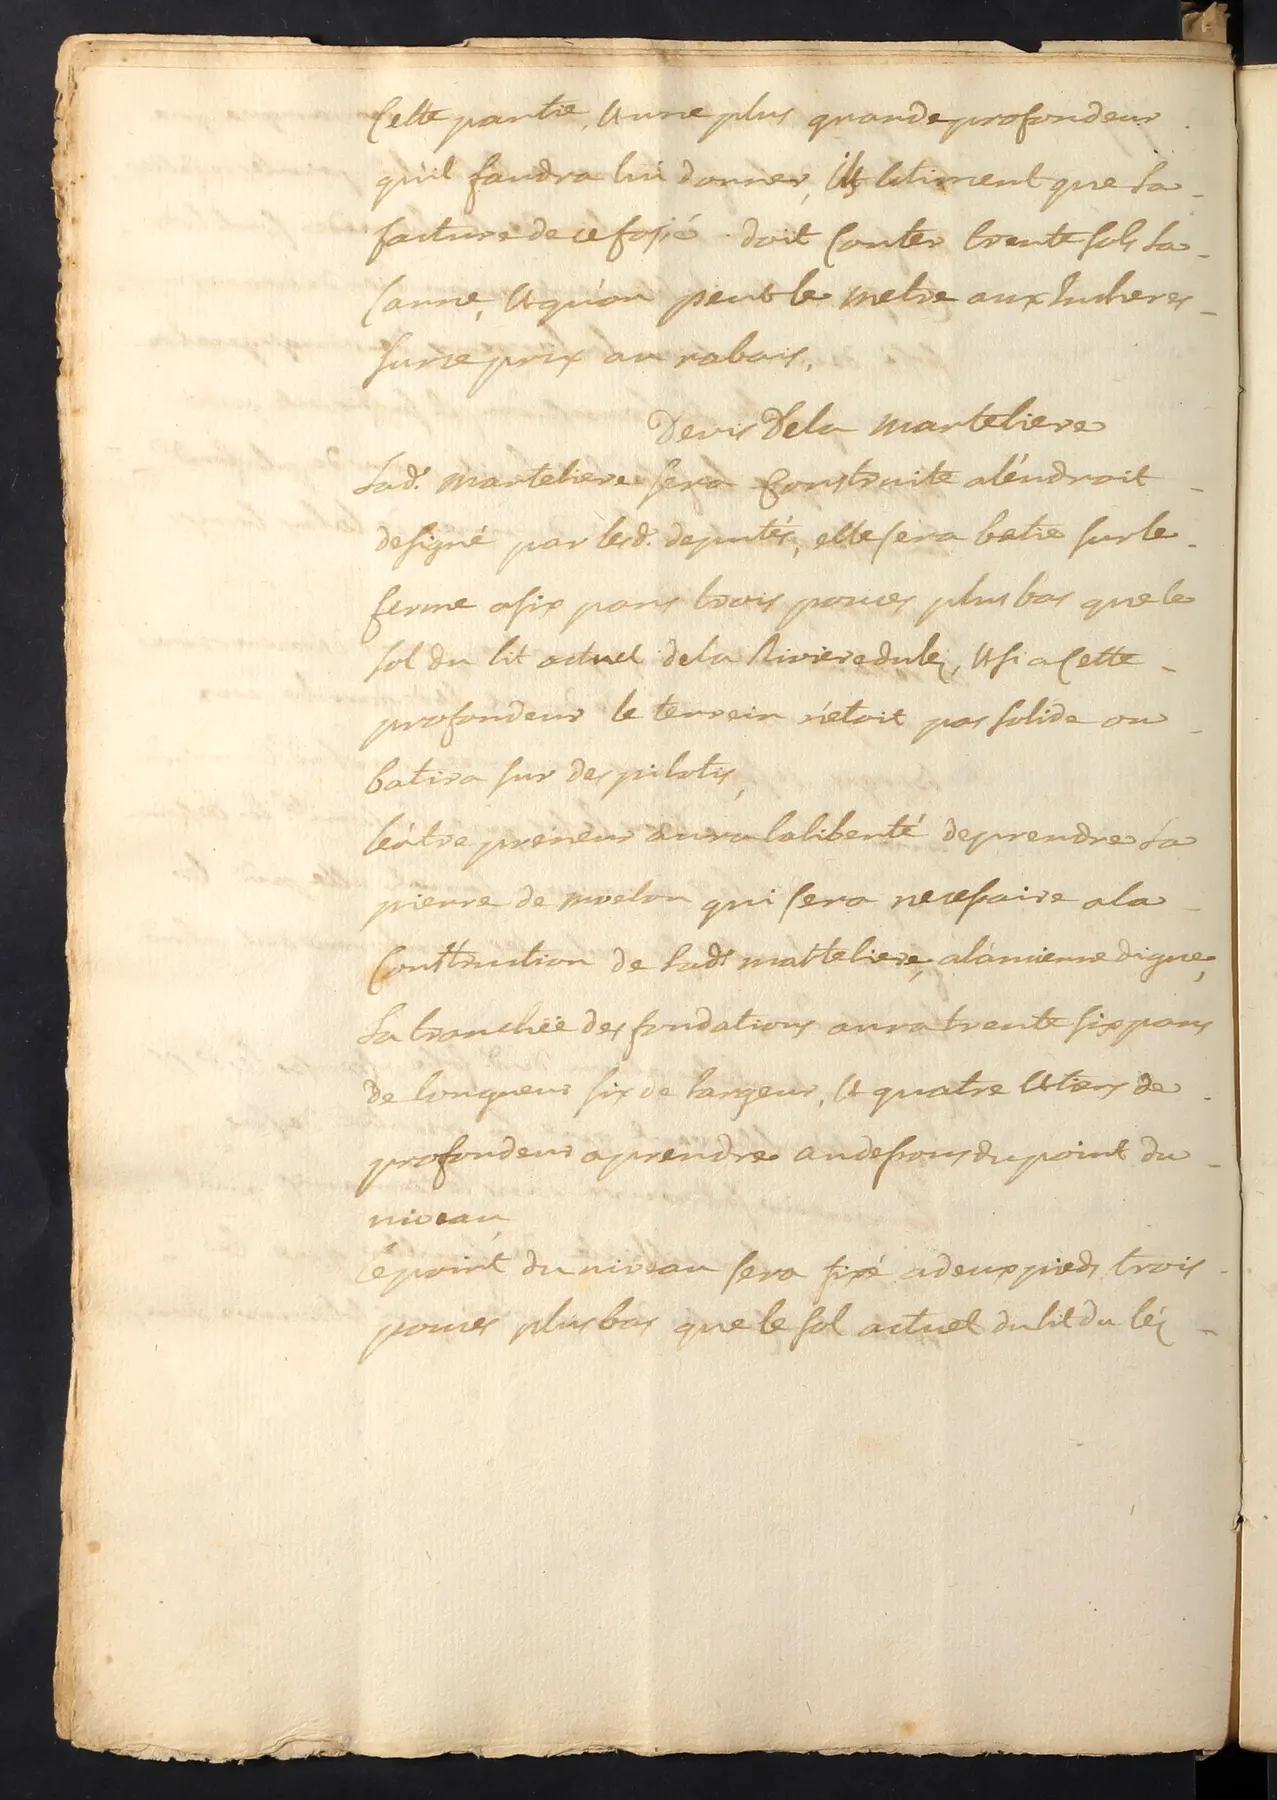 Cette partie, & une plus grande profondeur
qu'il faudra lui donner, ils estiment que la
facture de ce fossé doit couter trente sols la
canne, & qu'on peut le metre aux Incheres
sur ce prix au rabais,
Devis de la marteliere
Lad.e marteliere sera construite a l'endroit
designé par lesd. deputés, elle sera batie sur le
ferme a six pans trois pouces plus bas que le
sol du lit actuel de la Riviere du lez, & si a cette
profondeur le terrein n'etoit pas solide on
batira sur des pilotis,
l'entrepreneur aura la liberté de prendre la
pierre de moelon qui sera necessaire a la
construction de lad.e marteliere, a l'ancienne digue,
La tranchée des fondations aura trente six pans
de longueur six de largeur, & quatre & tiers de
profondeur a prendre au dessous du point du
niveau
Ce point du niveau sera fixé a deux pieds trois
pouces plus bas que le sol actuel du lit du léz